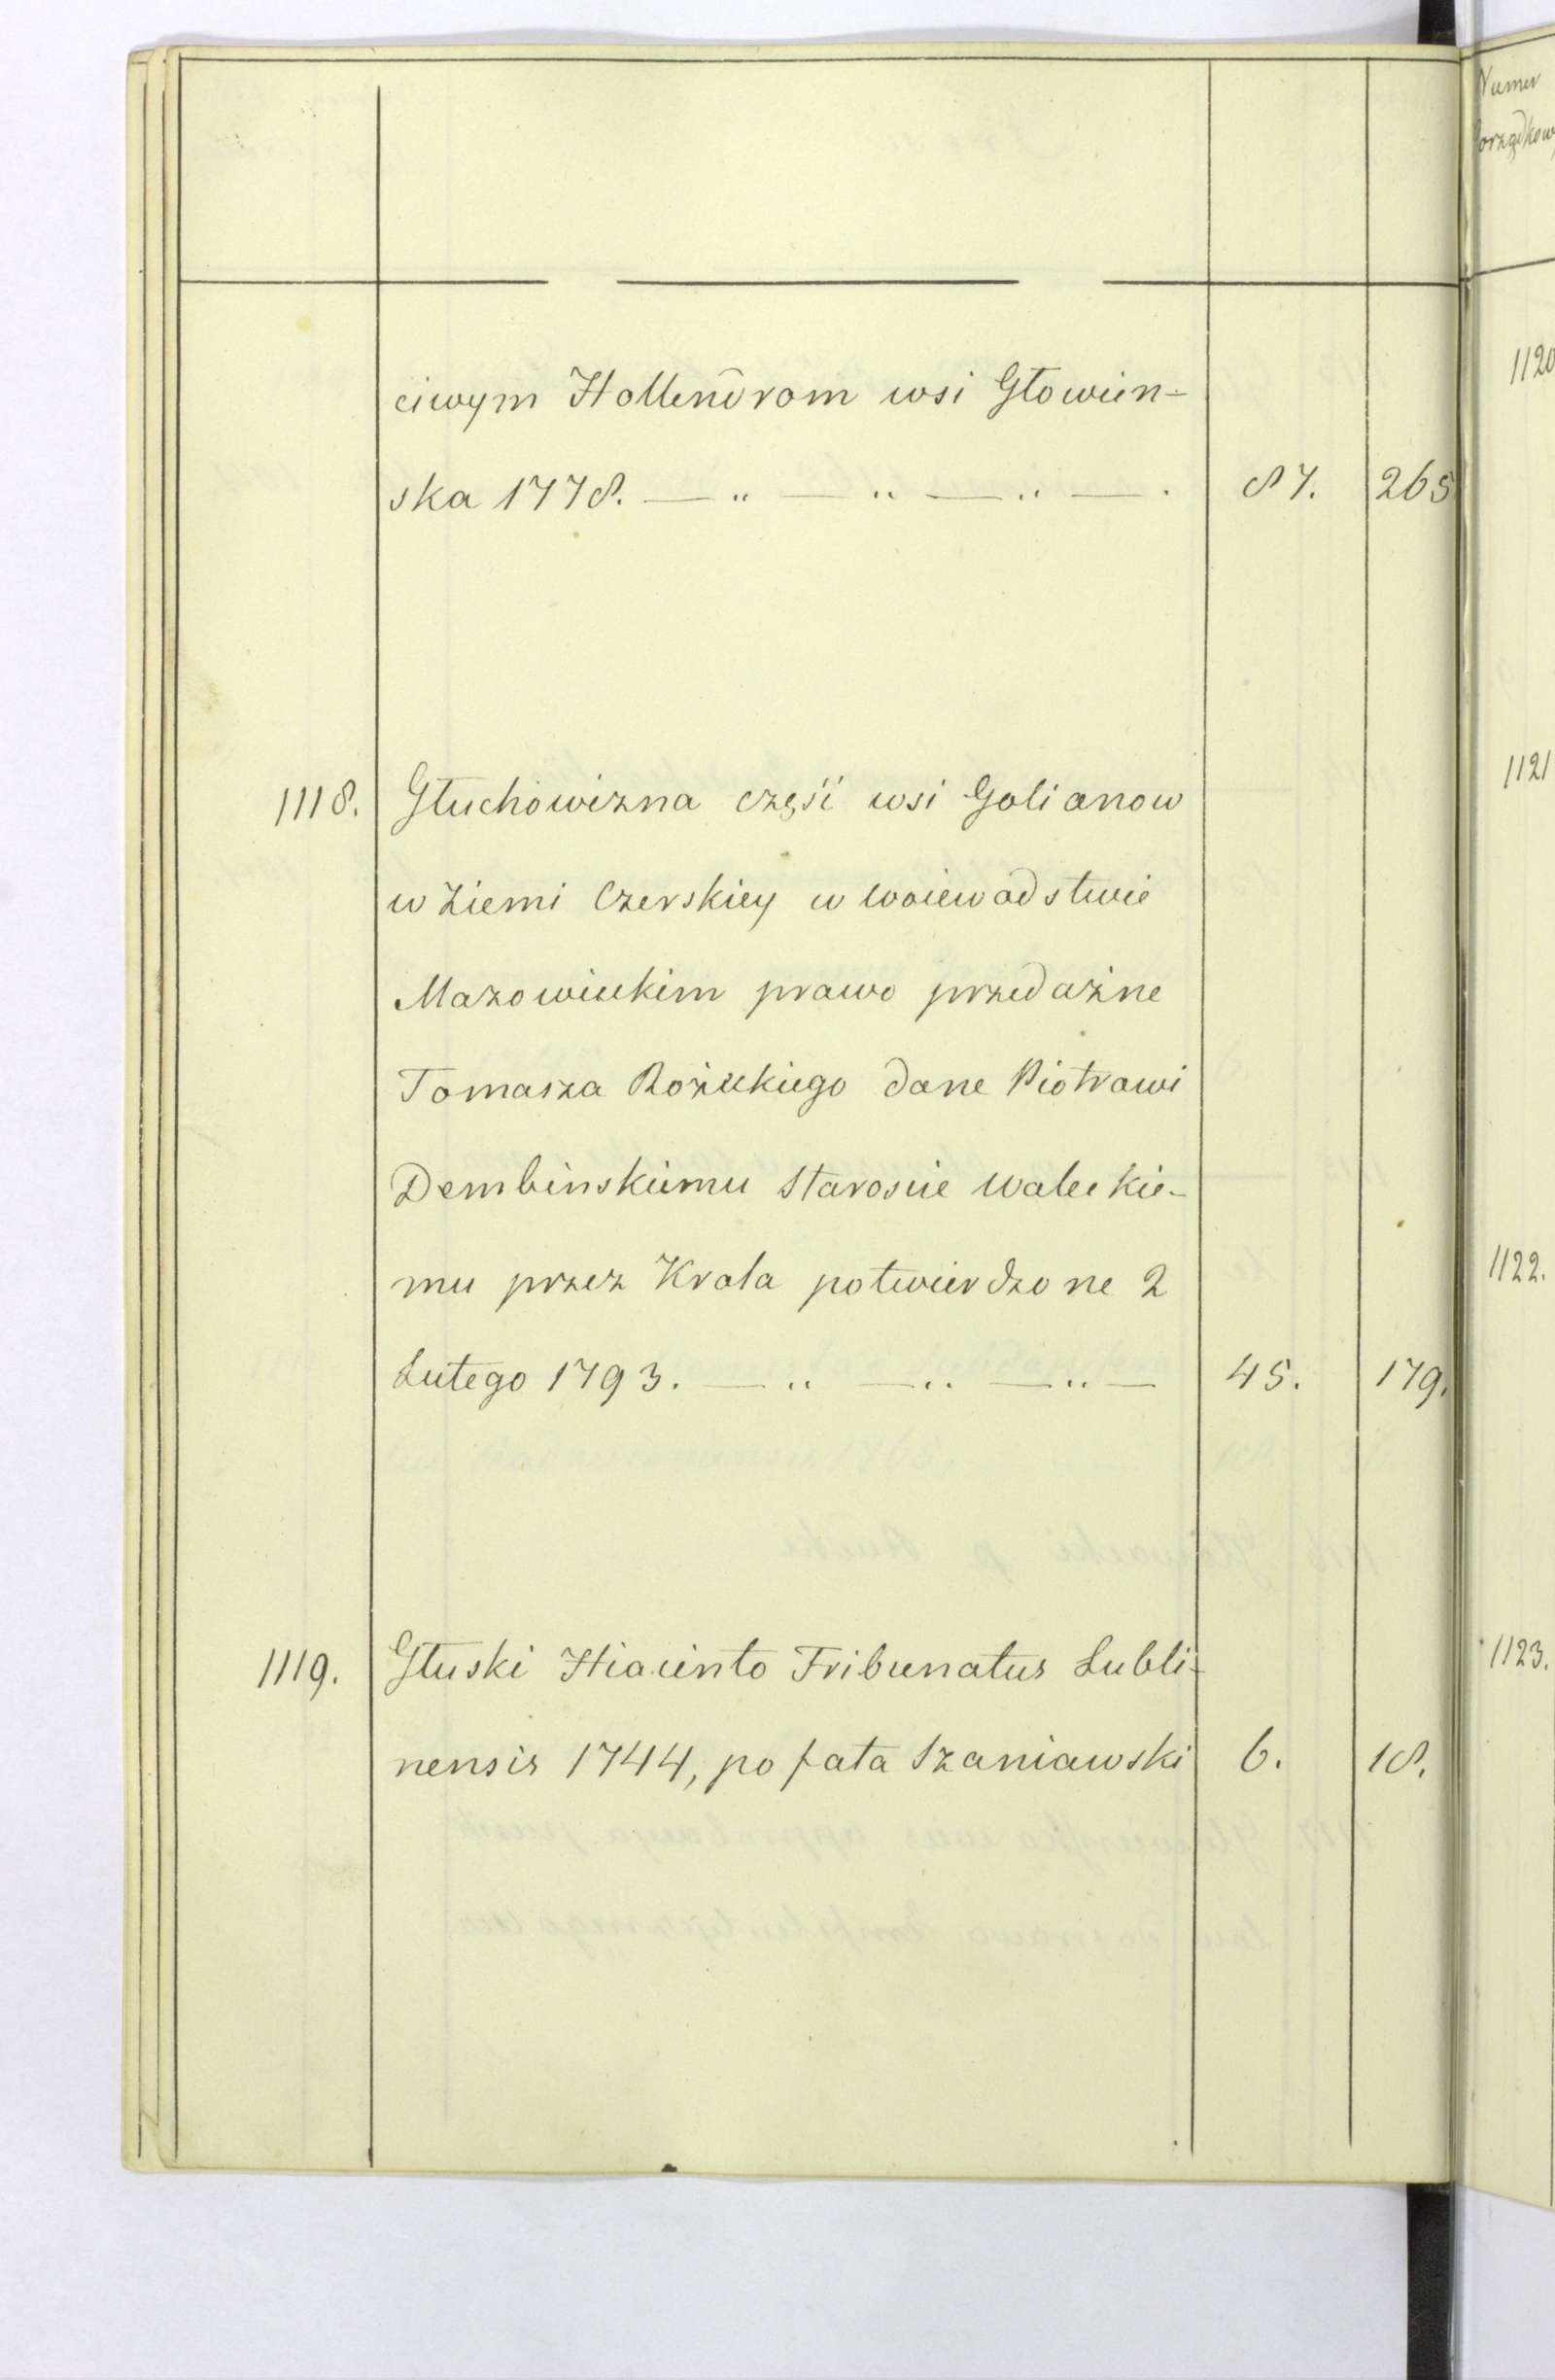 ciwym Hollendrom wsi Głowień-
ska 1778. — „ — „ — „ — . 87. 265
1118. Głuchowizna część wsi Golianow
w Ziemi Czerskiey w Woiewodstwie
Mazowieckim prawo przedażne
Tomasza Rożeckiego dane Piotrowi
Dembinskiemu Staroscie Waleckie-
mu przez Krola potwierdzone 2
Lutego 1793. — „ — „ — „ — 45. 179.
1119. Głuski Hiacinto Tribunatus Lubli-
nensis 1744, po fata Szaniawski 6. 18.
Numer
Porządkow
1120
1121
1122.
1123.